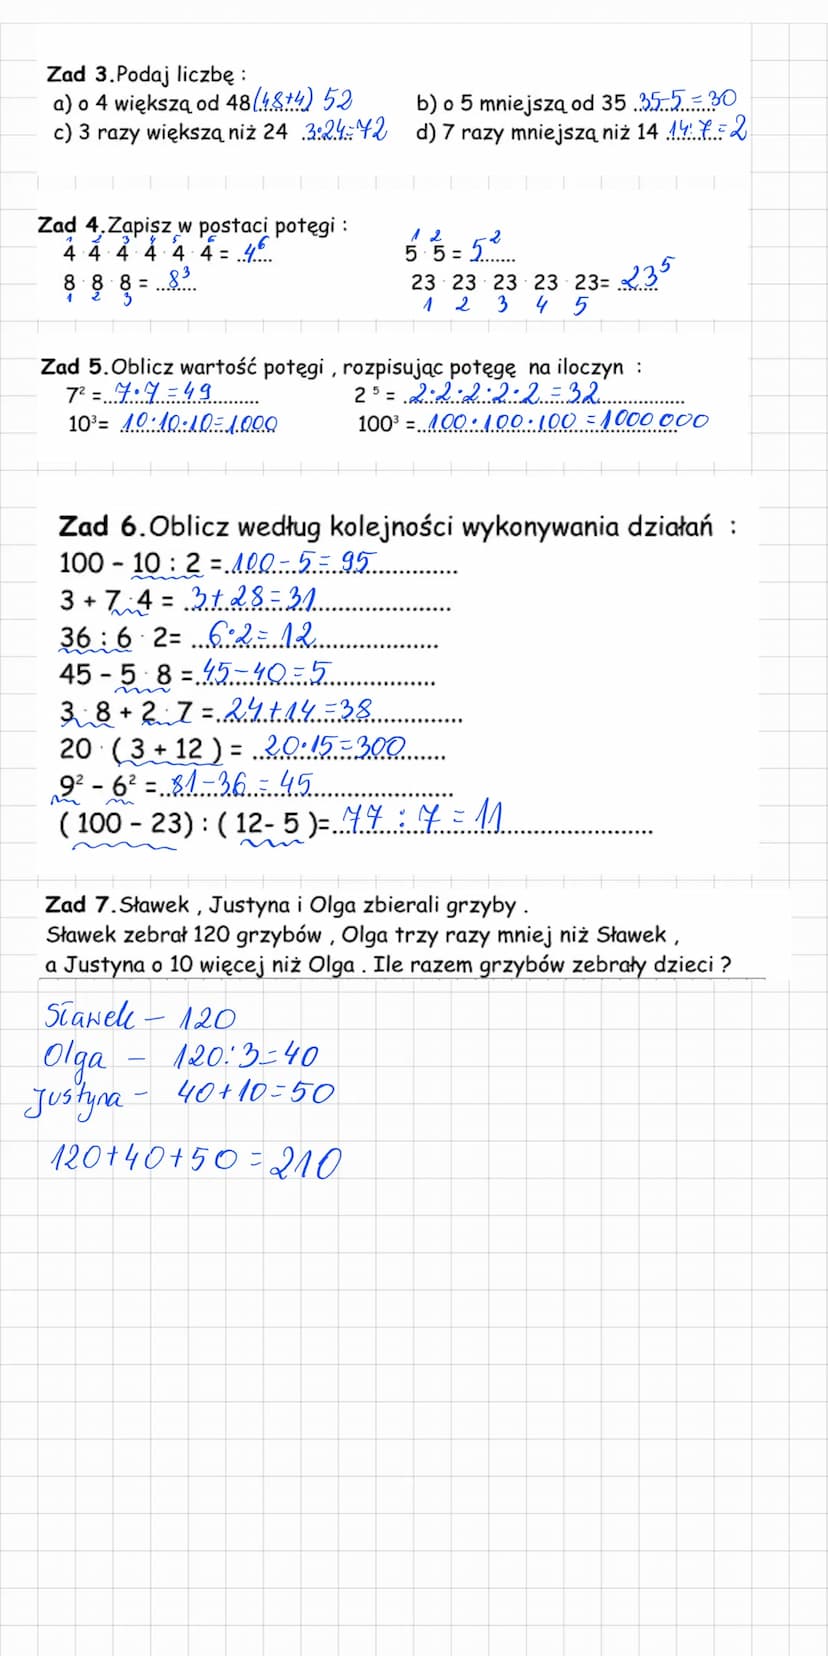 Zad 3.Podaj liczbę :
a) o 4 większą od 48 (48+4) 52 b) o 5 mniejszą od 35 35-5=30
c) 3 razy większą niż 24 3·24=72 d) 7 razy mniejszą niż 14 14:7=2
Zad 4.Zapisz w postaci potęgi :
1 2 3 4 5 6 1 2
4 · 4 · 4 · 4 · 4 · 4 = 4⁶ 5 · 5 = 5²
8 · 8 · 8 = 8³ 23 · 23 · 23 · 23 · 23= 23⁵
1 2 3 1 2 3 4 5
Zad 5.Oblicz wartość potęgi , rozpisując potęgę na iloczyn :
7² = 7·7=49 2⁵ = 2·2·2·2·2=32
10³= 10·10·10=1000 100³ = 100·100·100=1000000
Zad 6.Oblicz według kolejności wykonywania działań :
100 - 10 : 2 = 100-5=95
3 + 7 · 4 = 3+28=31
36 : 6 · 2= 6·2=12
45 - 5 · 8 = 45-40=5
3 · 8 + 2 · 7 = 24+14=38
20 · ( 3 + 12 ) = 20·15=300
9² - 6² = 81-36=45
( 100 - 23) : ( 12- 5 )= 77:7=11
Zad 7.Sławek , Justyna i Olga zbierali grzyby .
Sławek zebrał 120 grzybów , Olga trzy razy mniej niż Sławek ,
a Justyna o 10 więcej niż Olga . Ile razem grzybów zebrały dzieci ?
Sławek - 120
Olga - 120:3=40
Justyna - 40+10=50
120+40+50=210